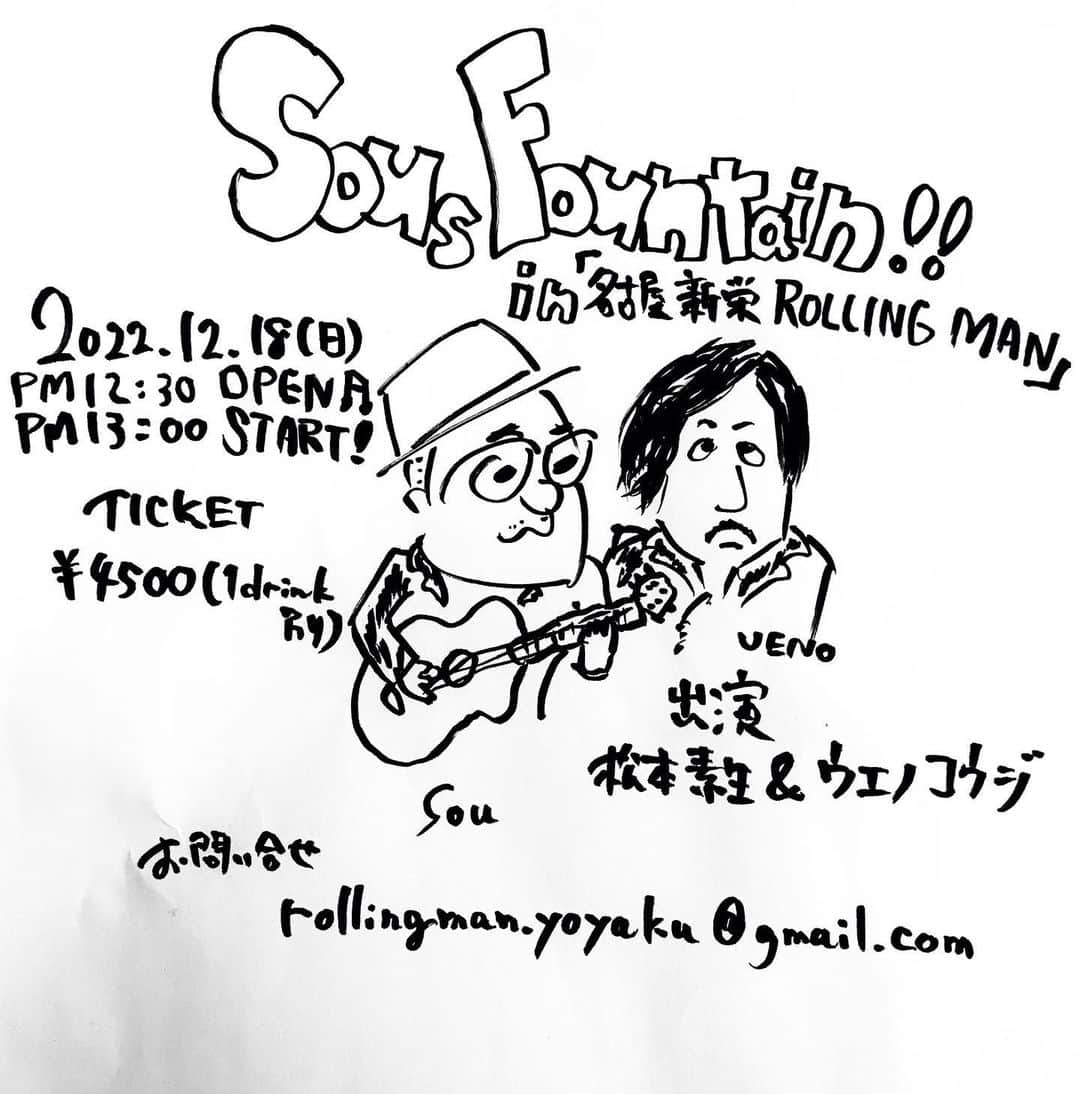 Sous Fountain!!
in「名古屋新栄 ROLLING MAN」
2022.12.18(日)
PM12:30 OPEN
PM13:00 START!
TICKET
¥4500(1drink
UENO
出演
松本素生&ウエノコウジ
Sou
お問い合せ
rollingman.yoyaku@gmail.com